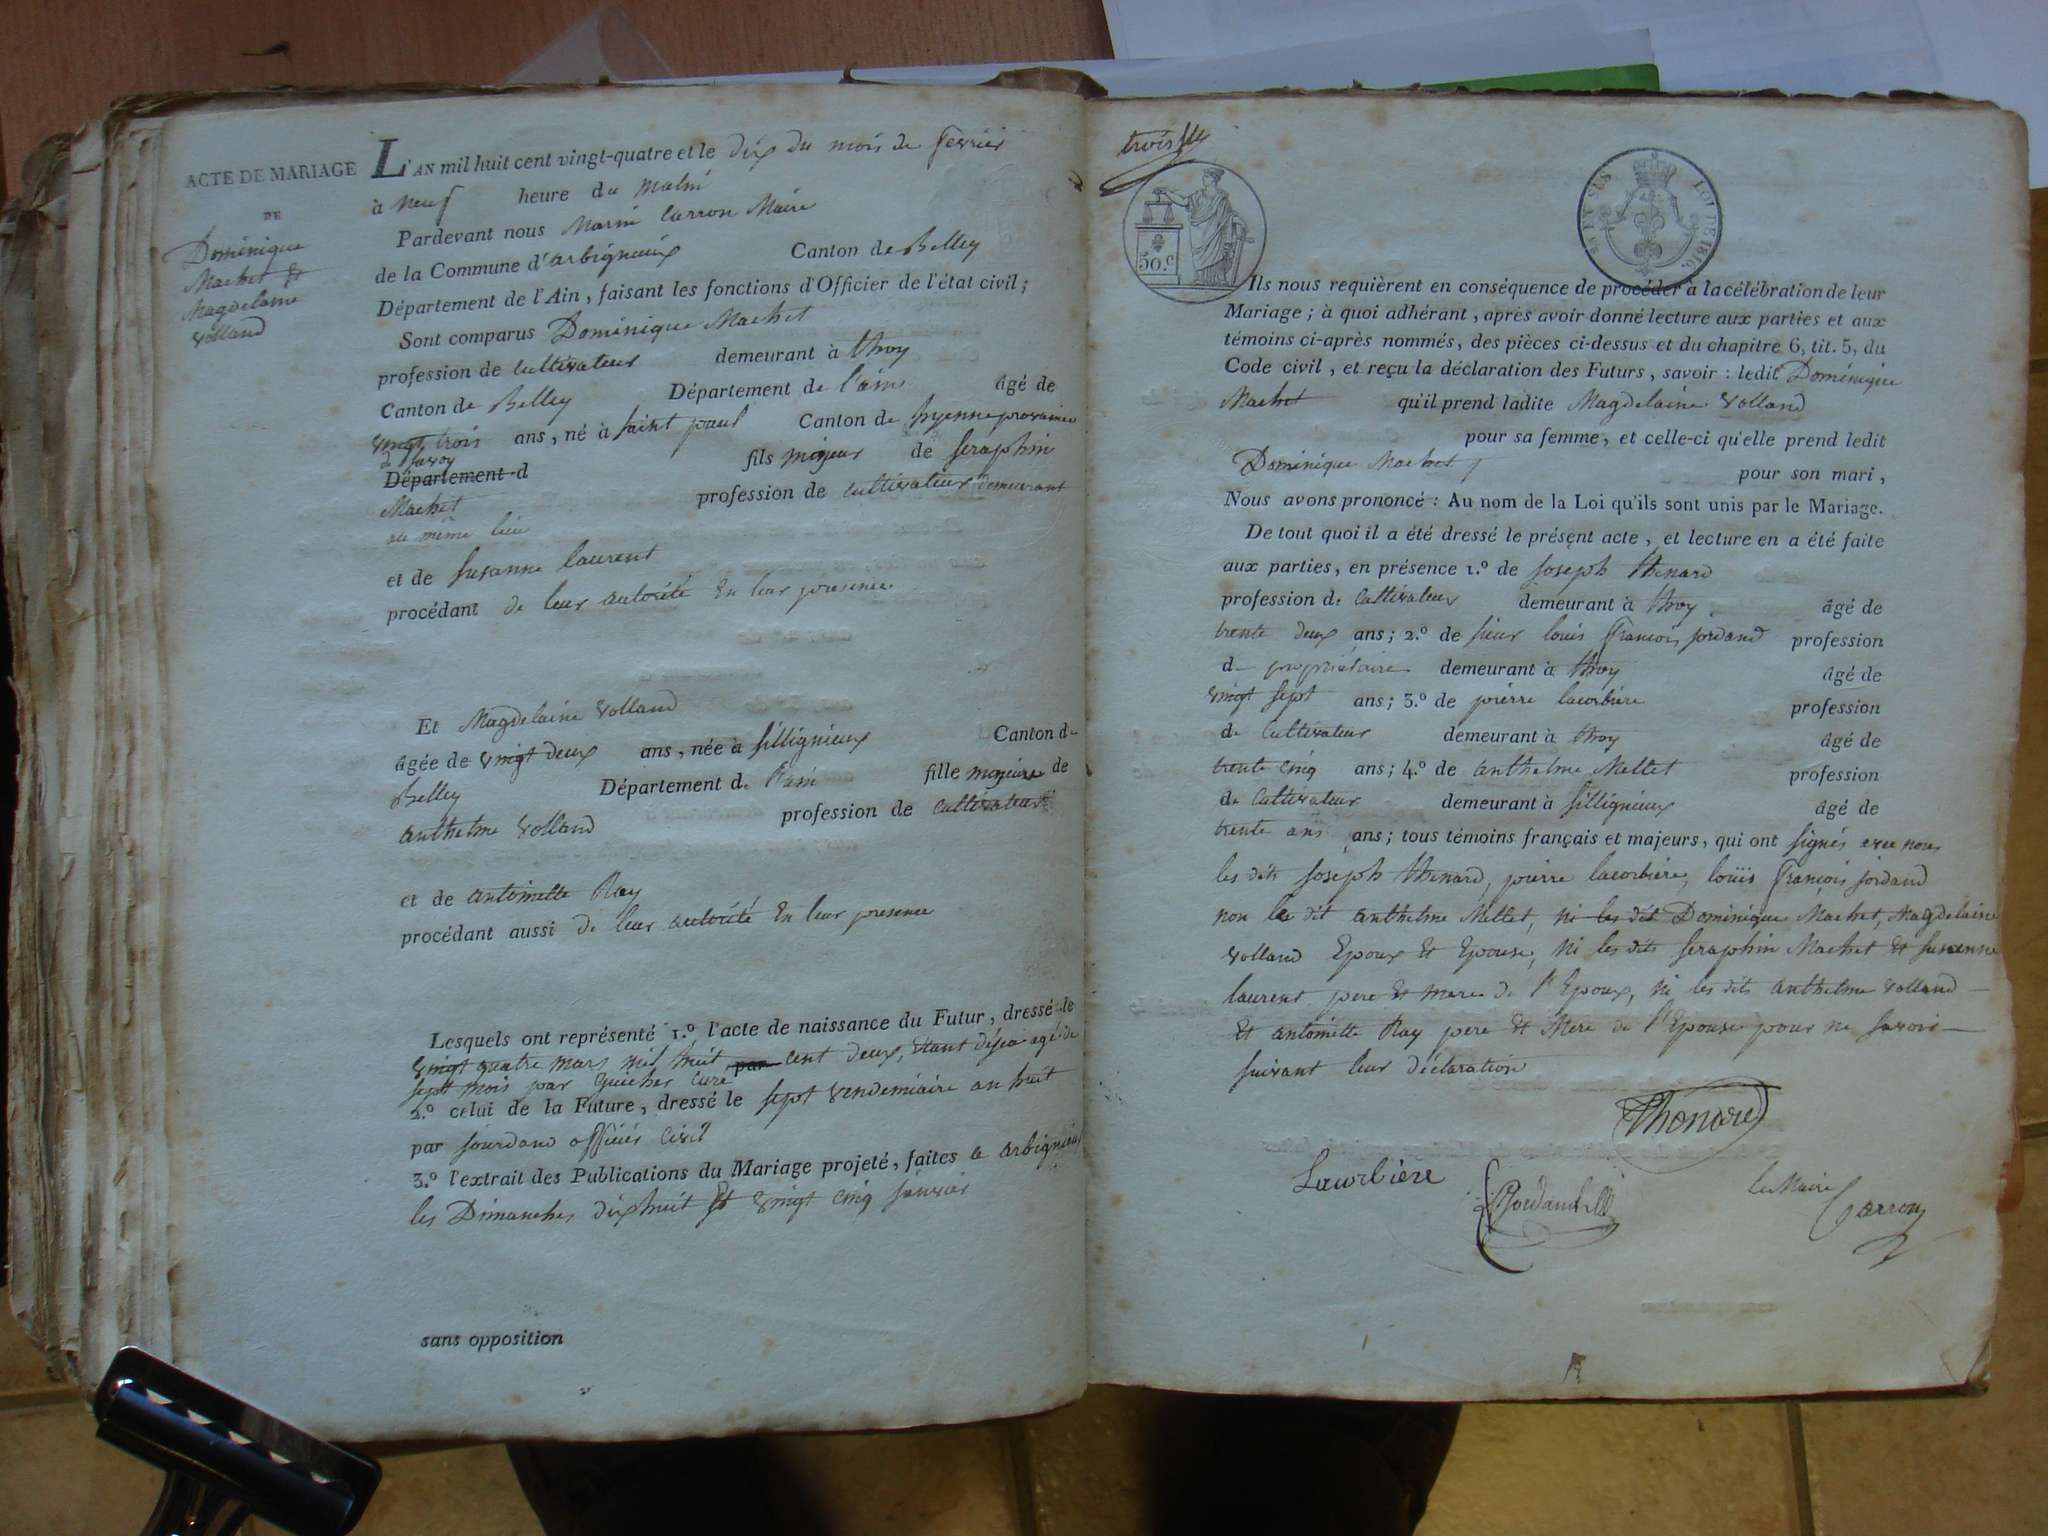 ACTE DE MARIAGE
DE
Dominique
Machet et
Magdelaine
volland
L'AN mil huit cent vingt-quatre et le dix du mois de fevrier
à neuf heure du matin
Pardevant nous Marin Carron Maire
de la Commune d'arbignieux Canton de Belley
Département de l'Ain, faisant les fonctions d'Officier de l'état civil;
Sont comparus Dominique Machet
profession de Cultivateur demeurant à thoy
Canton de Belley Département de l'ain âgé de
vingt trois ans, né à saint paul Canton de hyenne provaince
de savoy
Département d fils majeur de Seraphin
Machet profession de Cultivateur demeurant
au même lieu
et de Susanne laurent
procédant de leur autorité en leur presence
Et Magdelaine volland
âgée de vingt deux ans, née à Sillignieux Canton de
Belley Département de l'ain fille majeure de
anthelme volland profession de Cultivateur
et de antoinette Ray
procédant aussi de leur autorité en leur presence
Lesquels ont représenté 1.º l'acte de naissance du Futur, dressé le
vingt quatre mars mil huit par cent deux, étant déja agé de
sept mois par curé
2.º celui de la Future, dressé le sept vendemiaire an huit
par Jourdand officier civil
3.º l'extrait des Publications du Mariage projeté, faites a arbignieux
les Dimanches dix huit et vingt cinq janvier
sans opposition
trois
50.c
LOI DE 1816.
Ils nous requièrent en conséquence de procéder à la célébration de leur
Mariage; à quoi adhérant, après avoir donné lecture aux parties et aux
témoins ci-après nommés, des pièces ci-dessus et du chapitre 6, tit. 5, du
Code civil, et reçu la déclaration des Futurs, savoir: ledit Dominique
Machet qu'il prend ladite Magdelaine volland
pour sa femme, et celle-ci qu'elle prend ledit
Dominique Machet pour son mari,
Nous avons prononcé: Au nom de la Loi qu'ils sont unis par le Mariage.
De tout quoi il a été dressé le présent acte, et lecture en a été faite
aux parties, en présence 1.º de Joseph thenard
profession de Cultivateur demeurant à thoy âgé de
trente deux ans; 2.º de sieur louis françois jordand profession
de propriétaire demeurant à thoy âgé de
vingt sept ans; 3.º de pierre lacorbiere profession
de Cultivateur demeurant à thoy âgé de
trente cinq ans; 4.º de anthelme Mellet profession
de Cultivateur demeurant à Sillignieux âgé de
trente ans ans; tous témoins français et majeurs, qui ont signés avec nous
les dits Joseph thenard, pierre lacorbiere, louis françois jordand
non le dit anthelme Mellet, ni les dit Dominique Machet, Magdelaine
volland Epoux et Epouse, ni les dits seraphin Machet et susanne
laurent pere et mere de l'Epoux, ni les dits anthelme volland
et antoinette Ray pere et Mere de l'Epouse pour ne savoir
suivant leur déclaration
Thonard
Lacorbiere
Jordand
le Maire
Carron